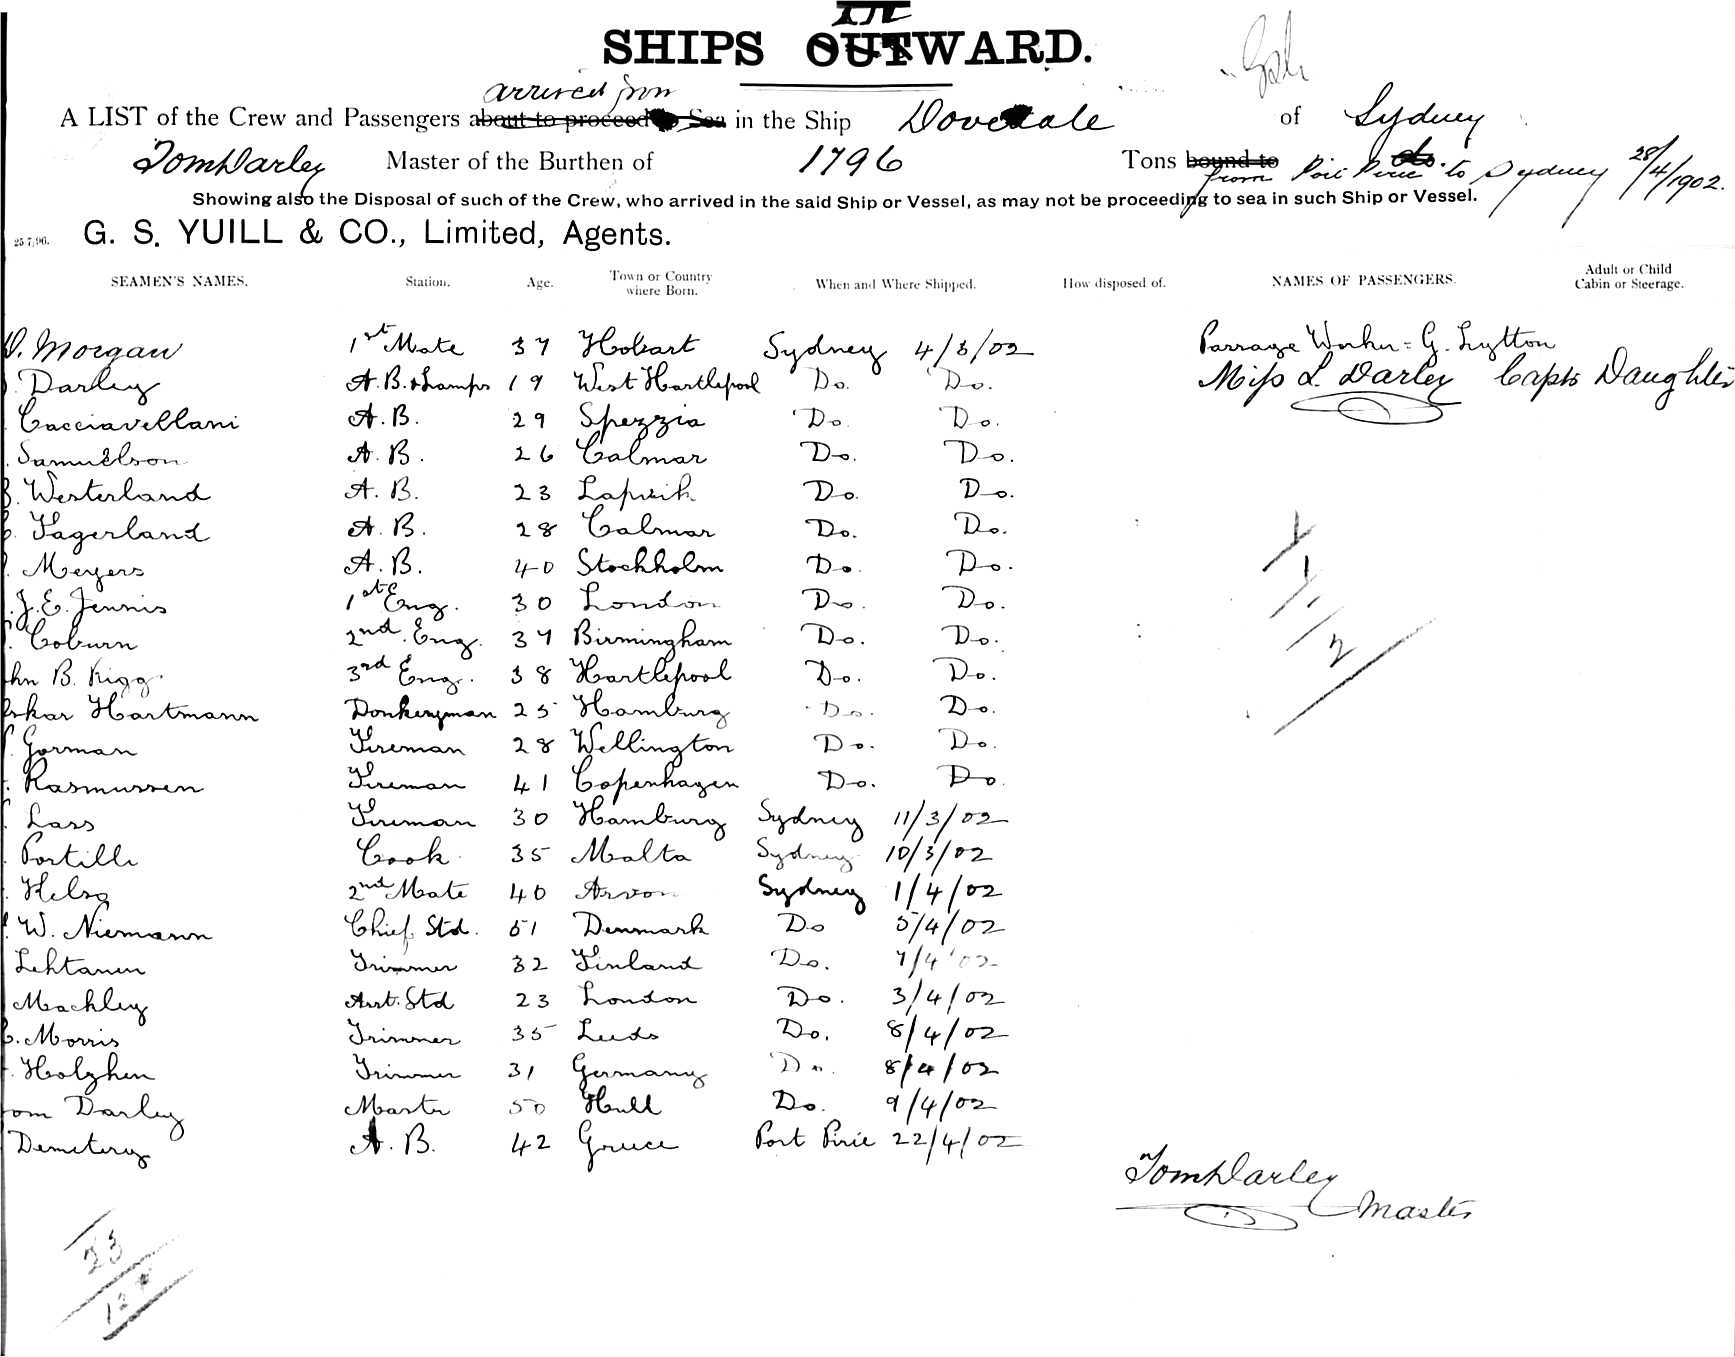 IN
SHIPS OUTWARD.
arrived from
A LIST of the Crew and Passengers about to proceed to Sea in the Ship Dovedale of Sydney
Tom Darley Master of the Burthen of 1796 Tons bound to from Port Pirie to Sydney 28/4/1902.
Showing also the Disposal of such of the Crew, who arrived in the said Ship or Vessel, as may not be proceeding to sea in such Ship or Vessel.
25/7/96. G. S. YUILL & CO., Limited, Agents.
SEAMEN'S NAMES. Station. Age. Town or Country where Born. When and Where Shipped. How disposed of. NAMES OF PASSENGERS. Adult or Child Cabin or Steerage.
Morgan 1st Mate 37 Hobart Sydney 4/3/02 Passage Worker = G. Lytton
Darley A.B. & Lamps 19 West Hartlepool Do. Do. Miss L. Darley Capts Daughter
Cacciavellani A.B. 29 Spezzia Do. Do.
Samuelson A.B. 26 Calmar Do. Do.
Westerland A.B. 23 Do. Do.
Fagerland A.B. 28 Calmar Do. Do.
Meyers A.B. 40 Stockholm Do. Do.
J. E. Jennis 1st Eng. 30 London Do. Do.
Coburn 2nd. Eng. 37 Birmingham Do. Do.
hn B. Rigg 3rd Eng. 38 Hartlepool Do. Do.
skar Hartmann Donkeyman 25 Hamburg Do. Do.
Gorman Fireman 28 Wellington Do. Do.
Rasmussen Fireman 41 Copenhagen Do. Do
Lass Fireman 30 Hamburg Sydney 11/3/02
Portilli Cook 35 Malta Sydney 10/3/02
2nd Mate 40 Sydney 1/4/02
W. Niemann Chief Std. 51 Denmark Do 5/4/02
Lehtanen Trimmer 32 Finland Do. 7/4/02
Mackley Asst. Std 23 London Do. 3/4/02
Morris Trimmer 35 Leeds Do. 8/4/02
Holzhen Trimmer 31 Germany Do. 8/4/02
om Darley Master 50 Hull Do. 9/4/02
Demetery A.B. 42 Greece Port Pirie 22/4/02
1
1
2
Tom Darley
Master
23